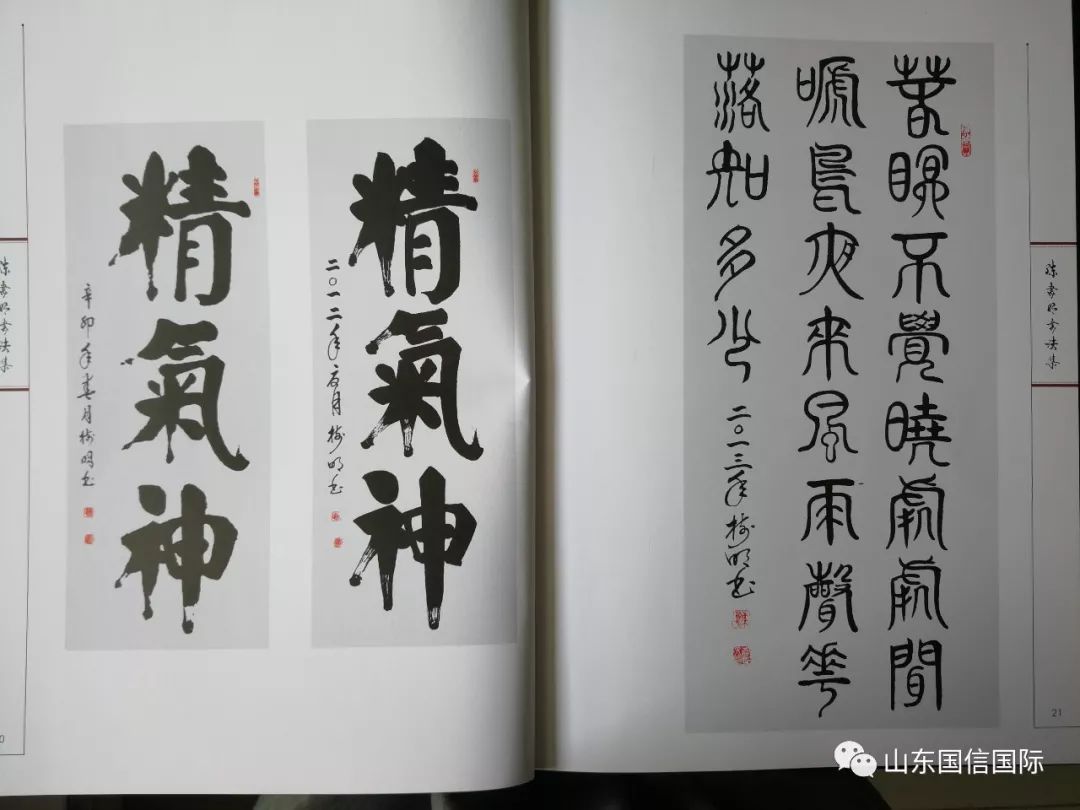 精氣神
辛卯年春月树明书
精氣神
二〇一二年月树明书
春眠不覺曉處處聞
嗁鳥夜來風雨聲花
落知多少
二〇一三年树明书
陈树明书法集
陈树明书法集
21
山东国信国际